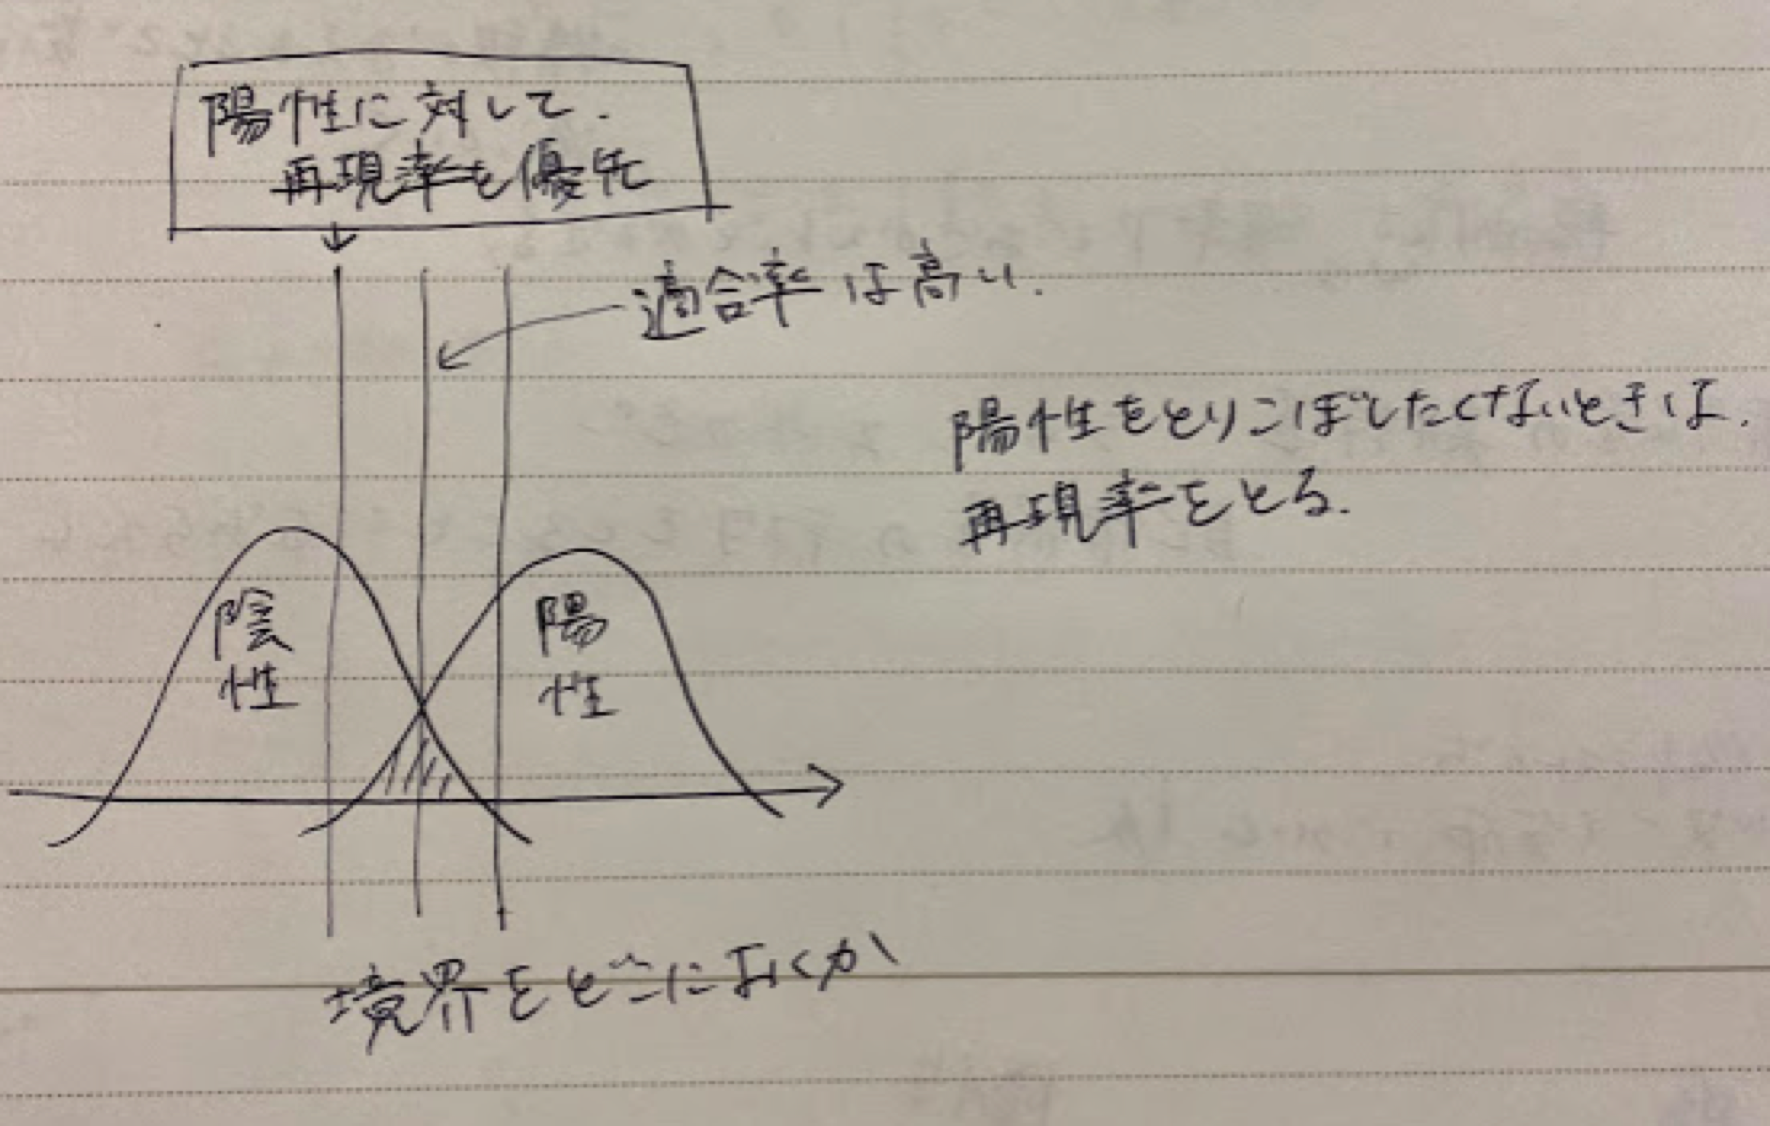 陽性に対して.
再現率を優先
適合率は高い.
陽性をとりこぼしたくないときは.
再現率をとる.
陰性
陽性
境界をどこにおくか